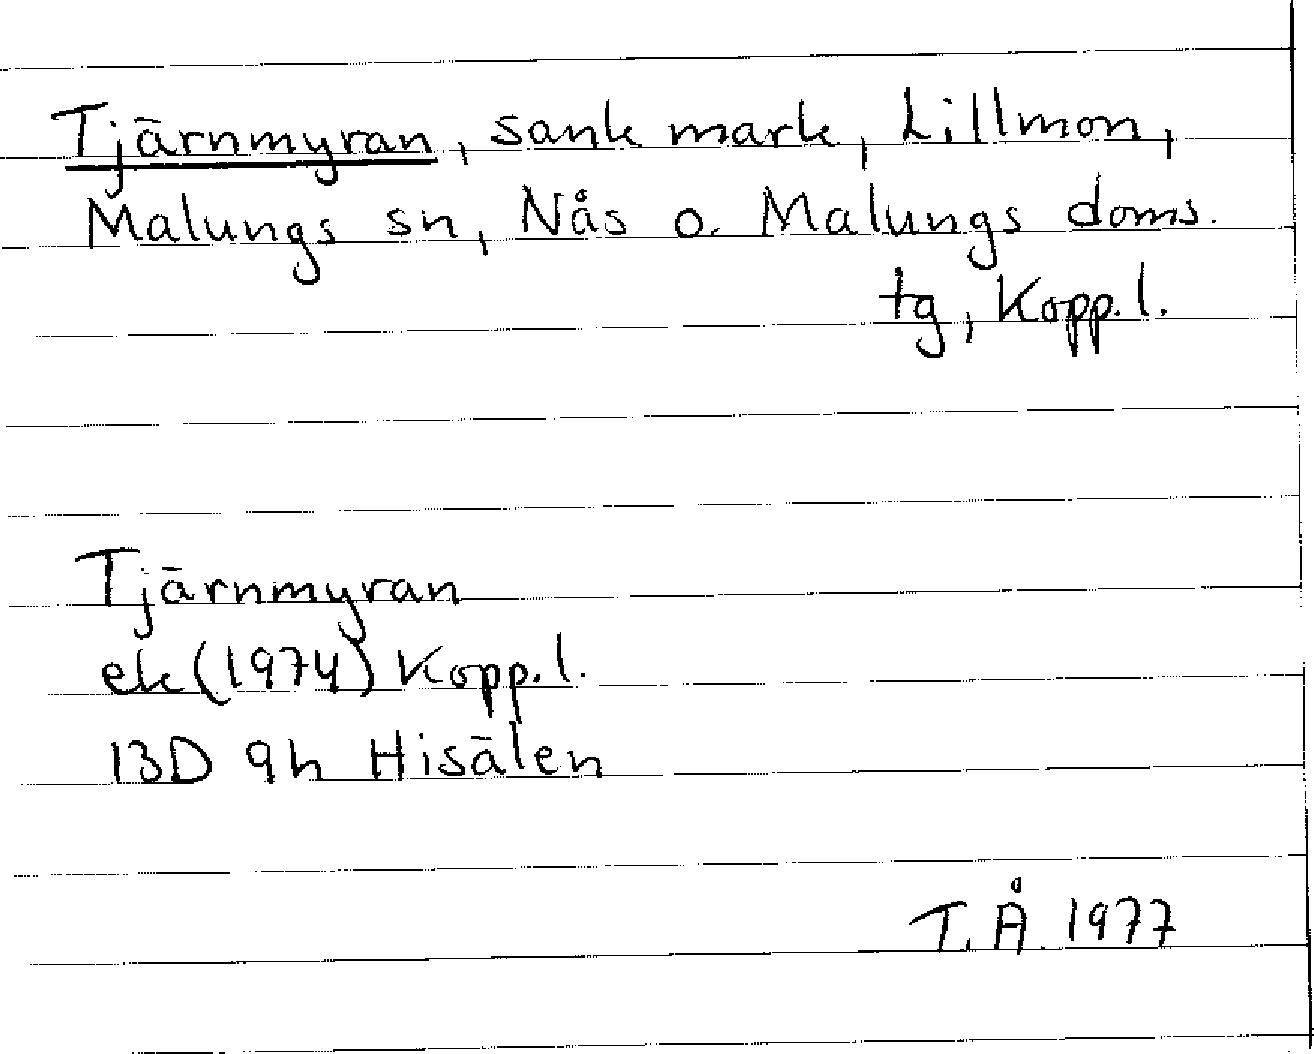 Tjärnmyran, sank mark, Lillmon,
Malungs sn, Nås o. Malungs doms.
tg, Kopp.l.
Tjärnmyran
ek (1974) Kopp.l.
13D 9h Hisälen
T.Å. 1977